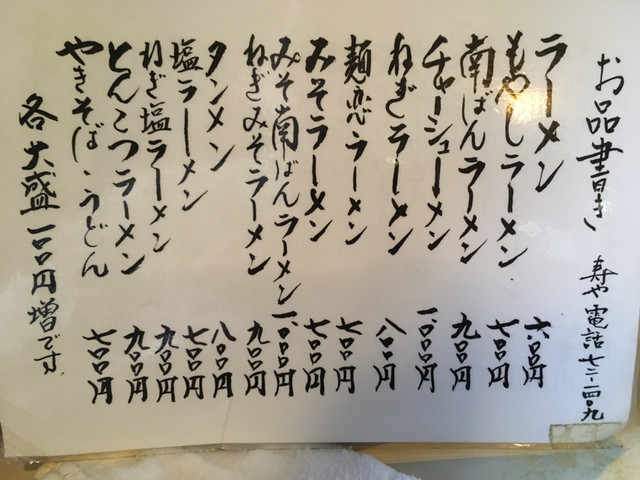 お品書き 寿や電話七二-二四〇九
ラーメン 六〇〇円
もやしラーメン 七〇〇円
南ばんラーメン 九〇〇円
チャーシューメン 一、〇〇〇円
ねぎラーメン 八〇〇円
麺恋ラーメン 七〇〇円
みそラーメン 七〇〇円
みそ南ばんラーメン 一、〇〇〇円
ねぎみそラーメン 九〇〇円
タンメン 八〇〇円
塩ラーメン 七〇〇円
ねぎ塩ラーメン 九〇〇円
とんこつラーメン 九〇〇円
やきそば・うどん 七〇〇円
各大盛一〇〇円増です.